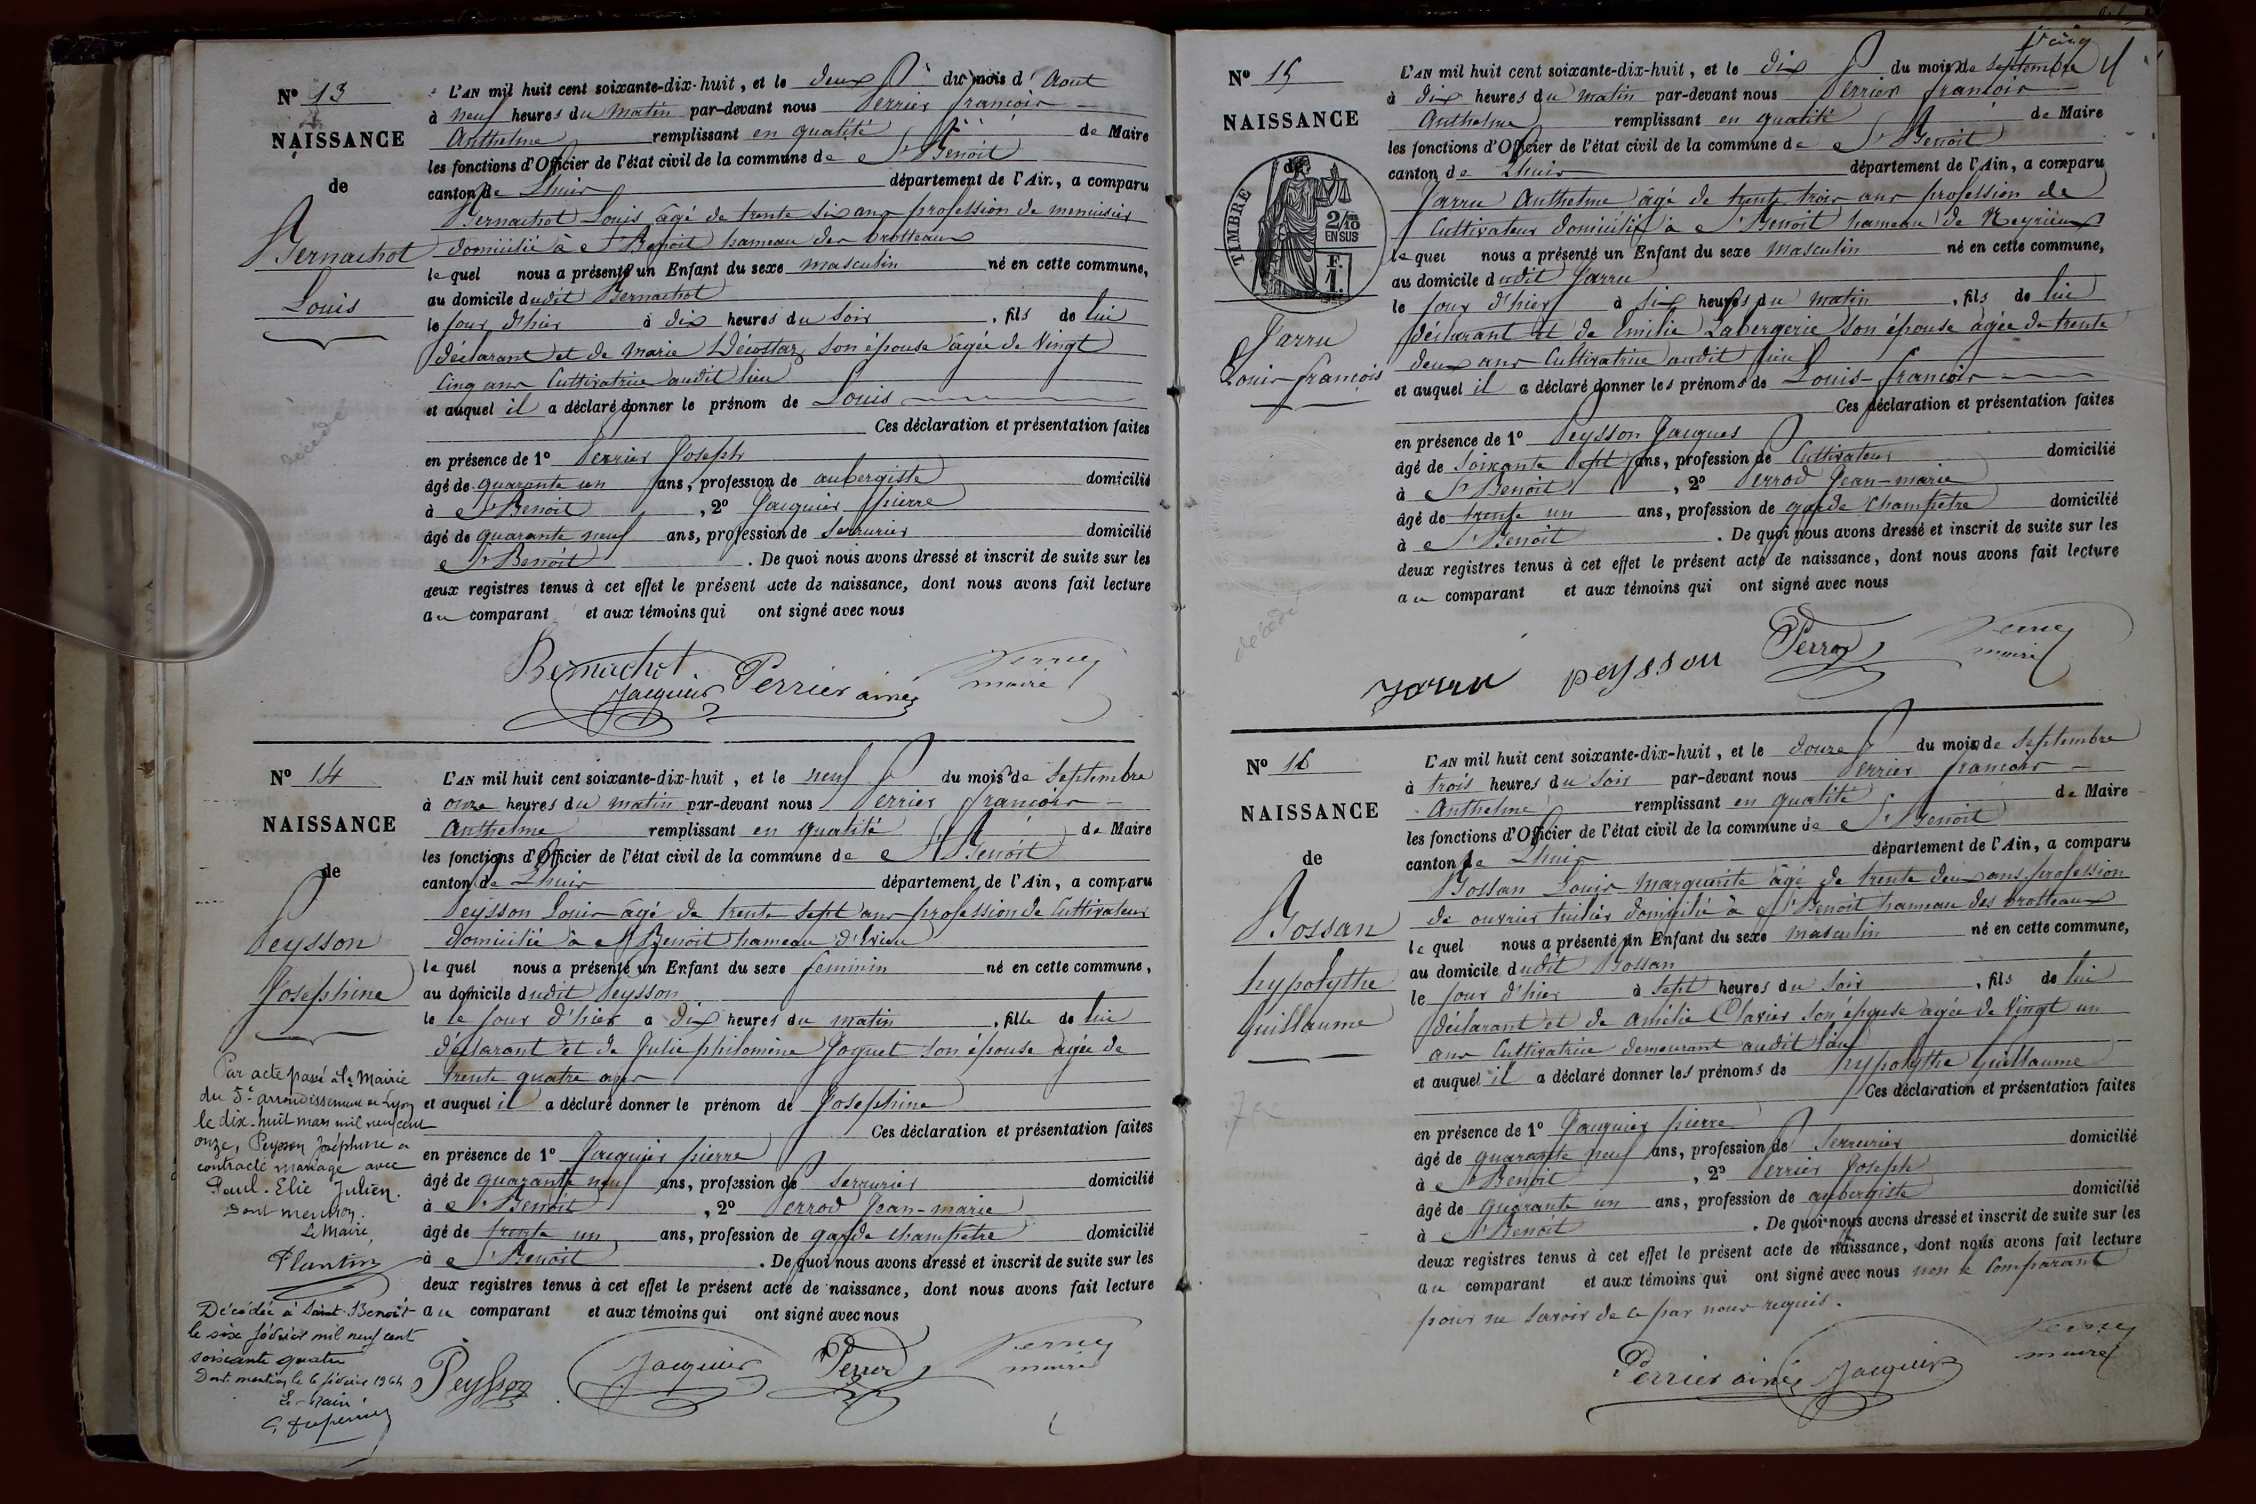 N° 13
NAISSANCE
de
Bernachot
Louis
L'AN mil huit cent soixante-dix-huit, et le deux du mois d'Aout
à neuf heures du matin par-devant nous Perrier françois
Anthelme remplissant en qualité de Maire
les fonctions d'Officier de l'état civil de la commune de St Benoit
canton de Lhuis département de l'Ain, a comparu
Bernachot Louis âgé de trente six ans profession de menuisier
domicilié à St Benoit hameau des brotteaux
lequel nous a présenté un Enfant du sexe masculin né en cette commune,
au domicile dudit Bernachot
le jour d'hier à dix heures du soir, fils de lui
déclarant et de Marie son épouse âgée de Vingt
Cinq ans Cultivatrice audit lieu
et auquel il a déclaré donner le prénom de Louis
Ces déclaration et présentation faites
en présence de 1° Perrier Joseph
âgé de quarante un ans, profession de aubergiste domicilié
à St Benoit, 2° Jacquier pierre
âgé de quarante neuf ans, profession de Serrurier domicilié
St Benoit. De quoi nous avons dressé et inscrit de suite sur les
deux registres tenus à cet effet le présent acte de naissance, dont nous avons fait lecture
au comparant et aux témoins qui ont signé avec nous
Bernachot Jacquier Perrier ainé
maire
N° 14
NAISSANCE
de
Peysson
Josephine
L'AN mil huit cent soixante-dix-huit, et le neuf du mois de Septembre
à onze heures du matin par-devant nous Perrier françois
Anthelme remplissant en qualité de Maire
les fonctions d'Officier de l'état civil de la commune de St Benoit
canton de Lhuis département de l'Ain, a comparu
Peysson Louis âgé de trente sept ans profession de Cultivateur
domicilié à St Benoit hameau d'Evieu
lequel nous a présenté un Enfant du sexe feminin né en cette commune,
au domicile dudit Peysson
le le jour d'hier à dix heures du matin, fille de lui
déclarant et de Julie philomène Joguet son épouse agée de
trente quatre ans
et auquel il a déclaré donner le prénom de Josephine
Ces déclaration et présentation faites
en présence de 1° Jacquier pierre
âgé de quarante neuf ans, profession de Serrurier domicilié
à St Benoit, 2° Perrod Jean-marie
âgé de trente un ans, profession de garde champêtre domicilié
à St Benoit. De quoi nous avons dressé et inscrit de suite sur les
deux registres tenus à cet effet le présent acte de naissance, dont nous avons fait lecture
au comparant et aux témoins qui ont signé avec nous
Peysson Jacquier Perrod
maire
Par acte passé à la Mairie
du 5e arrondissement de Lyon
le dix-huit mars mil neuf cent
onze, Peysson Joséphine a
contracté mariage avec
Paul-Elie Julien.
Dont mention.
Le Maire,
Plantin
Décédée à Saint-Benoît
le six février mil neuf cent
soixante quatre
Dont mention le 6 février 1964
Le Maire
N° 15
NAISSANCE
de
TIMBRE
2/10 EN SUS
F. 1.
Jarru
Louis françois
L'AN mil huit cent soixante-dix-huit, et le dix du mois de Septembre
à dix heures du matin par-devant nous Perrier françois
Anthelme remplissant en qualité de Maire
les fonctions d'Officier de l'état civil de la commune de St Benoit
canton de Lhuis département de l'Ain, a comparu
Jarru Anthelme âgé de trente trois ans profession de
Cultivateur domicilié à St Benoit hameau de Neyrieux
lequel nous a présenté un Enfant du sexe masculin né en cette commune,
au domicile dudit Jarru
le jour d'hier à six heures du matin, fils de lui
déclarant et de Emilie Labergerie son épouse agée de trente
deux ans Cultivatrice audit lieu
et auquel il a déclaré donner les prénoms de Louis-françois
Ces déclaration et présentation faites
en présence de 1° Peysson Jacques
âgé de soixante sept ans, profession de Cultivateur domicilié
à St Benoit, 2° Perrod Jean-marie
âgé de trente un ans, profession de garde Champêtre domicilié
à St Benoit. De quoi nous avons dressé et inscrit de suite sur les
deux registres tenus à cet effet le présent acte de naissance, dont nous avons fait lecture
au comparant et aux témoins qui ont signé avec nous
Jarru peysson Perrod
maire
décédé
N° 16
NAISSANCE
de
Bossan
hypolythe
Guillaume
L'AN mil huit cent soixante-dix-huit, et le douze du mois de Septembre
à trois heures du soir par-devant nous Perrier françois
Anthelme remplissant en qualité de Maire
les fonctions d'Officier de l'état civil de la commune de St Benoit
canton de Lhuis département de l'Ain, a comparu
Bossan Louis Marguerite âgé de trente deux ans profession
de ouvrier tuilier domicilié à St Benoit hameau des brotteaux
lequel nous a présenté un Enfant du sexe masculin né en cette commune,
au domicile dudit Bossan
le jour d'hier à sept heures du soir, fils de lui
déclarant et de Amélie Clavier son épouse agée de Vingt un
ans Cultivatrice demeurant audit lieu
et auquel il a déclaré donner les prénoms de hypolythe Guillaume
Ces déclaration et présentation faites
en présence de 1° Jacquier pierre
âgé de quarante neuf ans, profession de Serrurier domicilié
à St Benoit, 2° Perrier Joseph
âgé de quarante un ans, profession de aubergiste domicilié
à St Benoit. De quoi nous avons dressé et inscrit de suite sur les
deux registres tenus à cet effet le présent acte de naissance, dont nous avons fait lecture
au comparant et aux témoins qui ont signé avec nous non le Comparant
pour ne savoir de ce par nous requis.
Perrier ainé Jacquier
maire